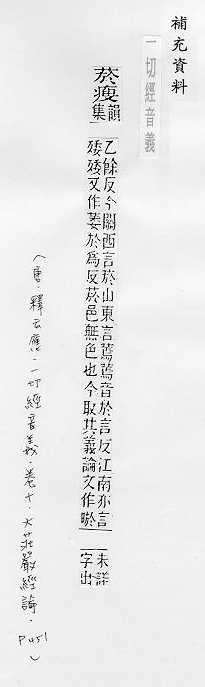 補充資料
一切經音義
菸瘦韻集
乙餘反今關西言菸山東言蔫蔫音於言反江南亦言
矮矮又作萎於為反菸邑無色也今取其義論文作瘀
未詳字出
(唐.釋玄應.一切經音義.卷十.大莊嚴經論. P451)